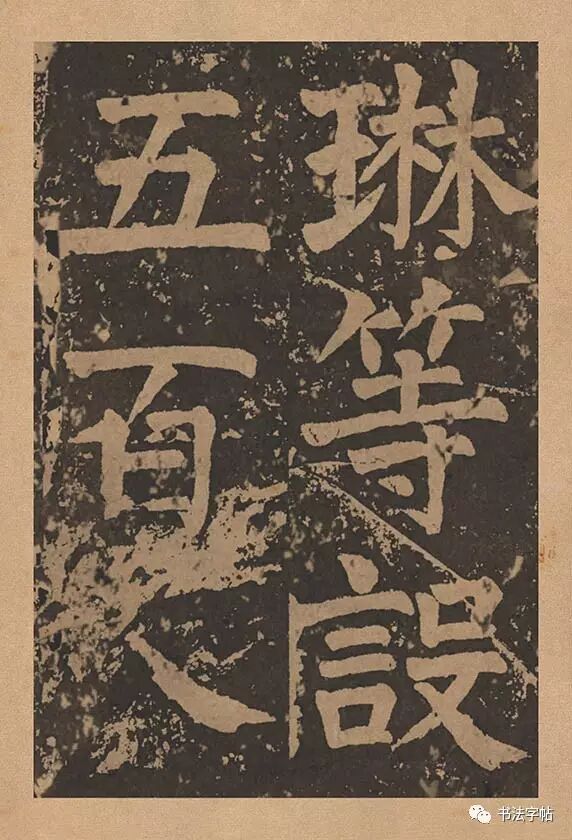 琳等設
五百人
书法字帖